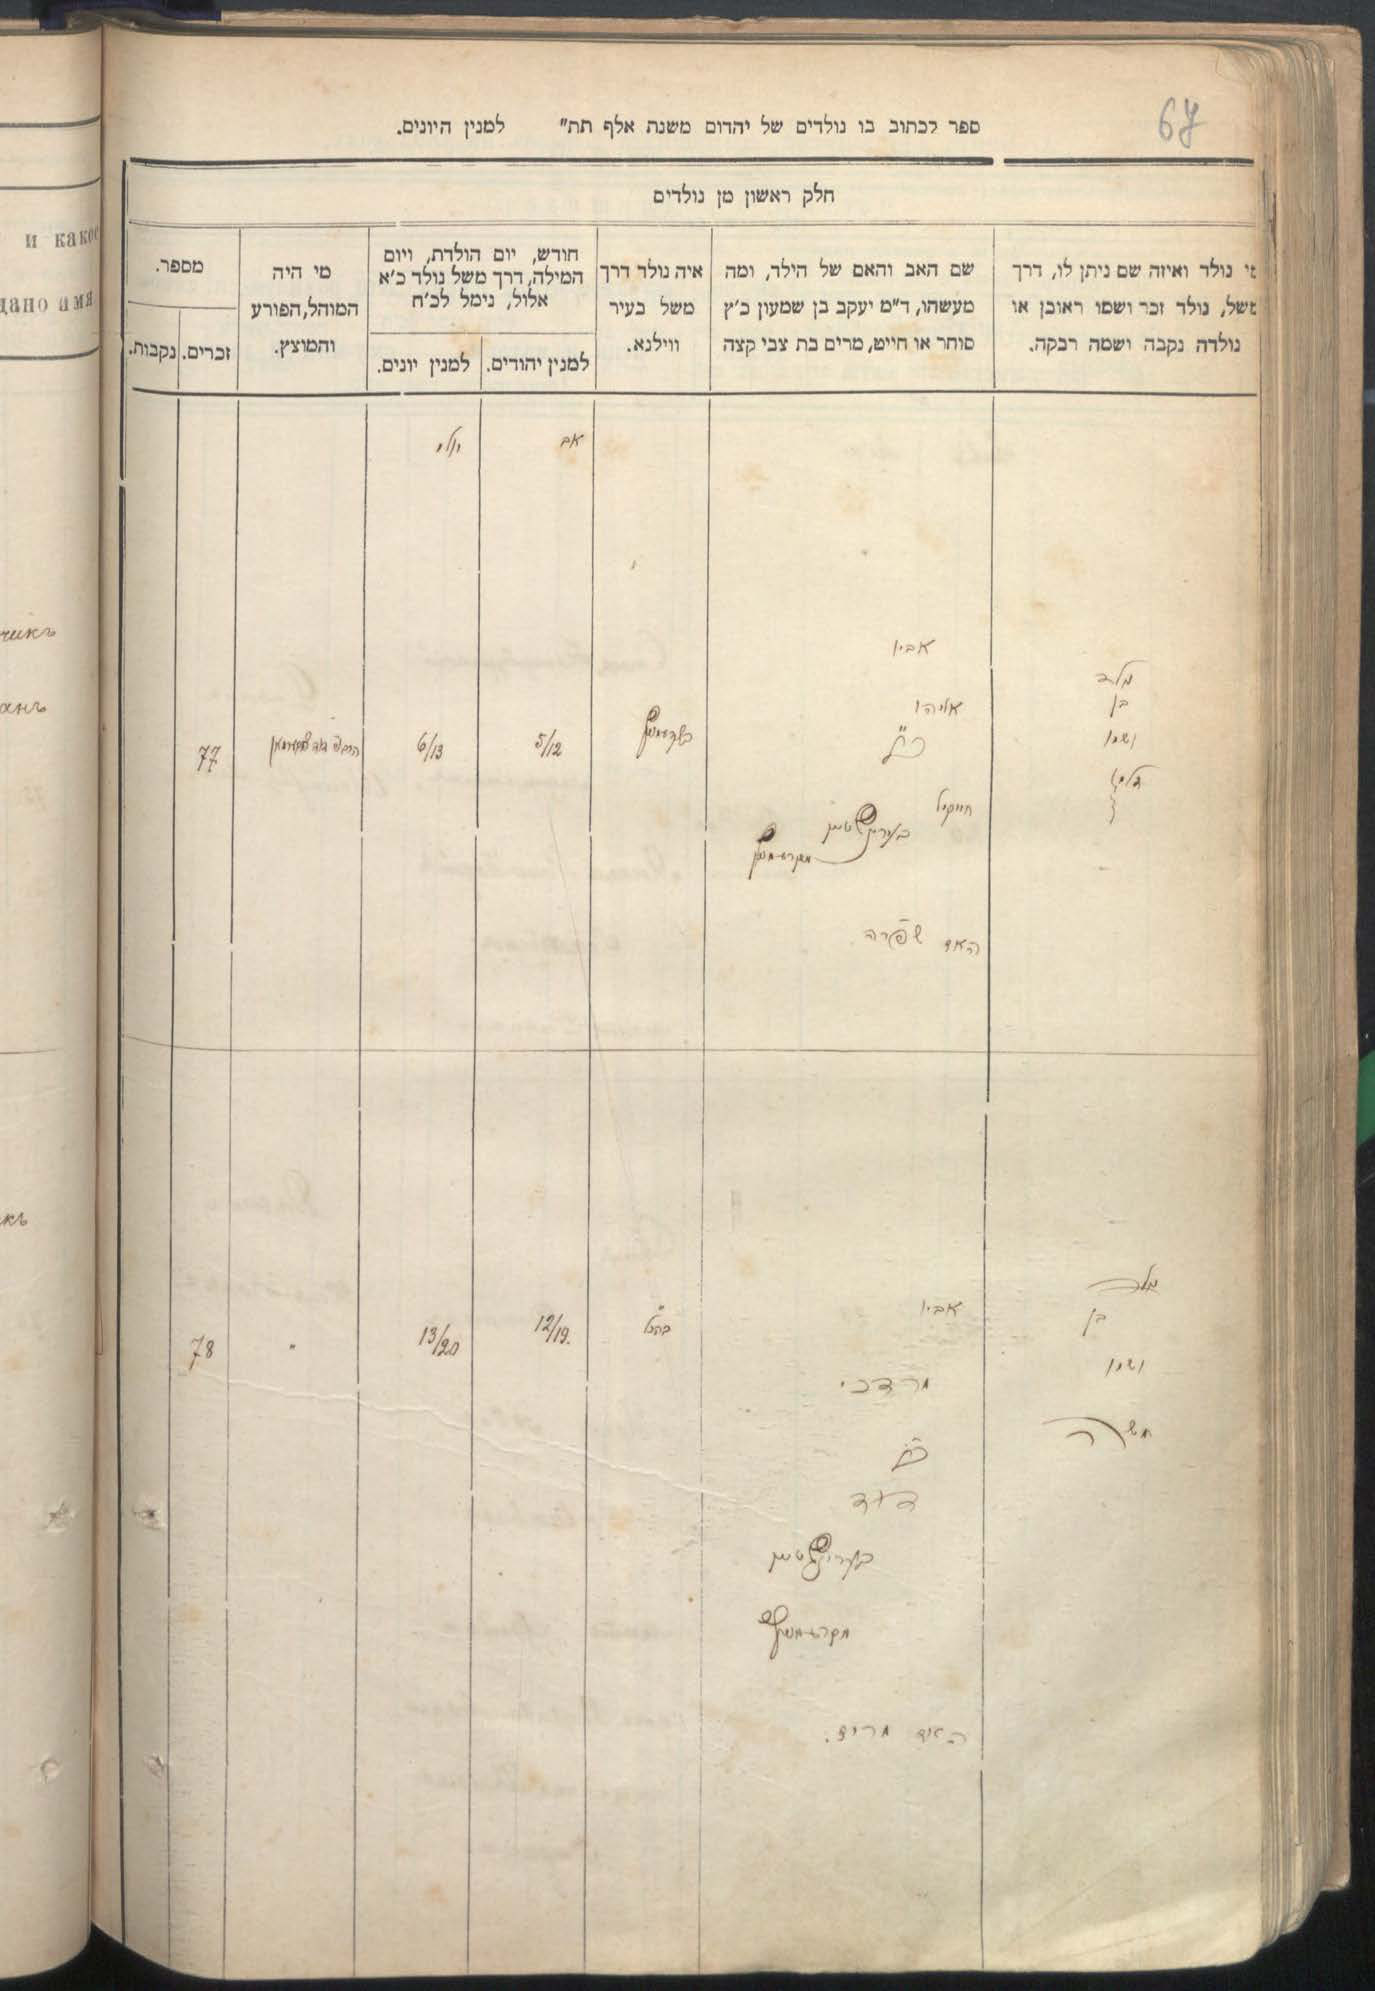 67
ספר לכתוב בו נולדים של יהדום משנת אלף תת" למנין היונים.
חלק ראשון מן נולדים
מי נולד ואיזה שם ניתן לו, דרך
משל, נולד זכר ושמו ראובן או
נולדה נקבה ושמה רבקה.
שם האב והאם של הילד, ומה
מעשהו, ד"מ יעקב בן שמעון כ'ץ
סוחר או חייט, מרים בת צבי קצה
איה נולד דרך
משל בעיר
ווילנא.
חודש, יום הולדת, ויום
המילה, דרך משל נולד כ'א
אלול, נימל לכ'ח
למנין יהודים.
למנין יונים.
מי היה
המוהל, הפורע
והמוצץ.
מספר.
זכרים.
נקבות.
אב
יולי
נולד
בן
ושמו
אביו
אליהו
חייקיל
האם שפרה
5/12
6/13
77
נולד
בן
ושמו
משה
אביו
מרדכי
דוד
האם
12/19.
13/20
"
78
и како
дано имя
чикъ
анъ
икъ